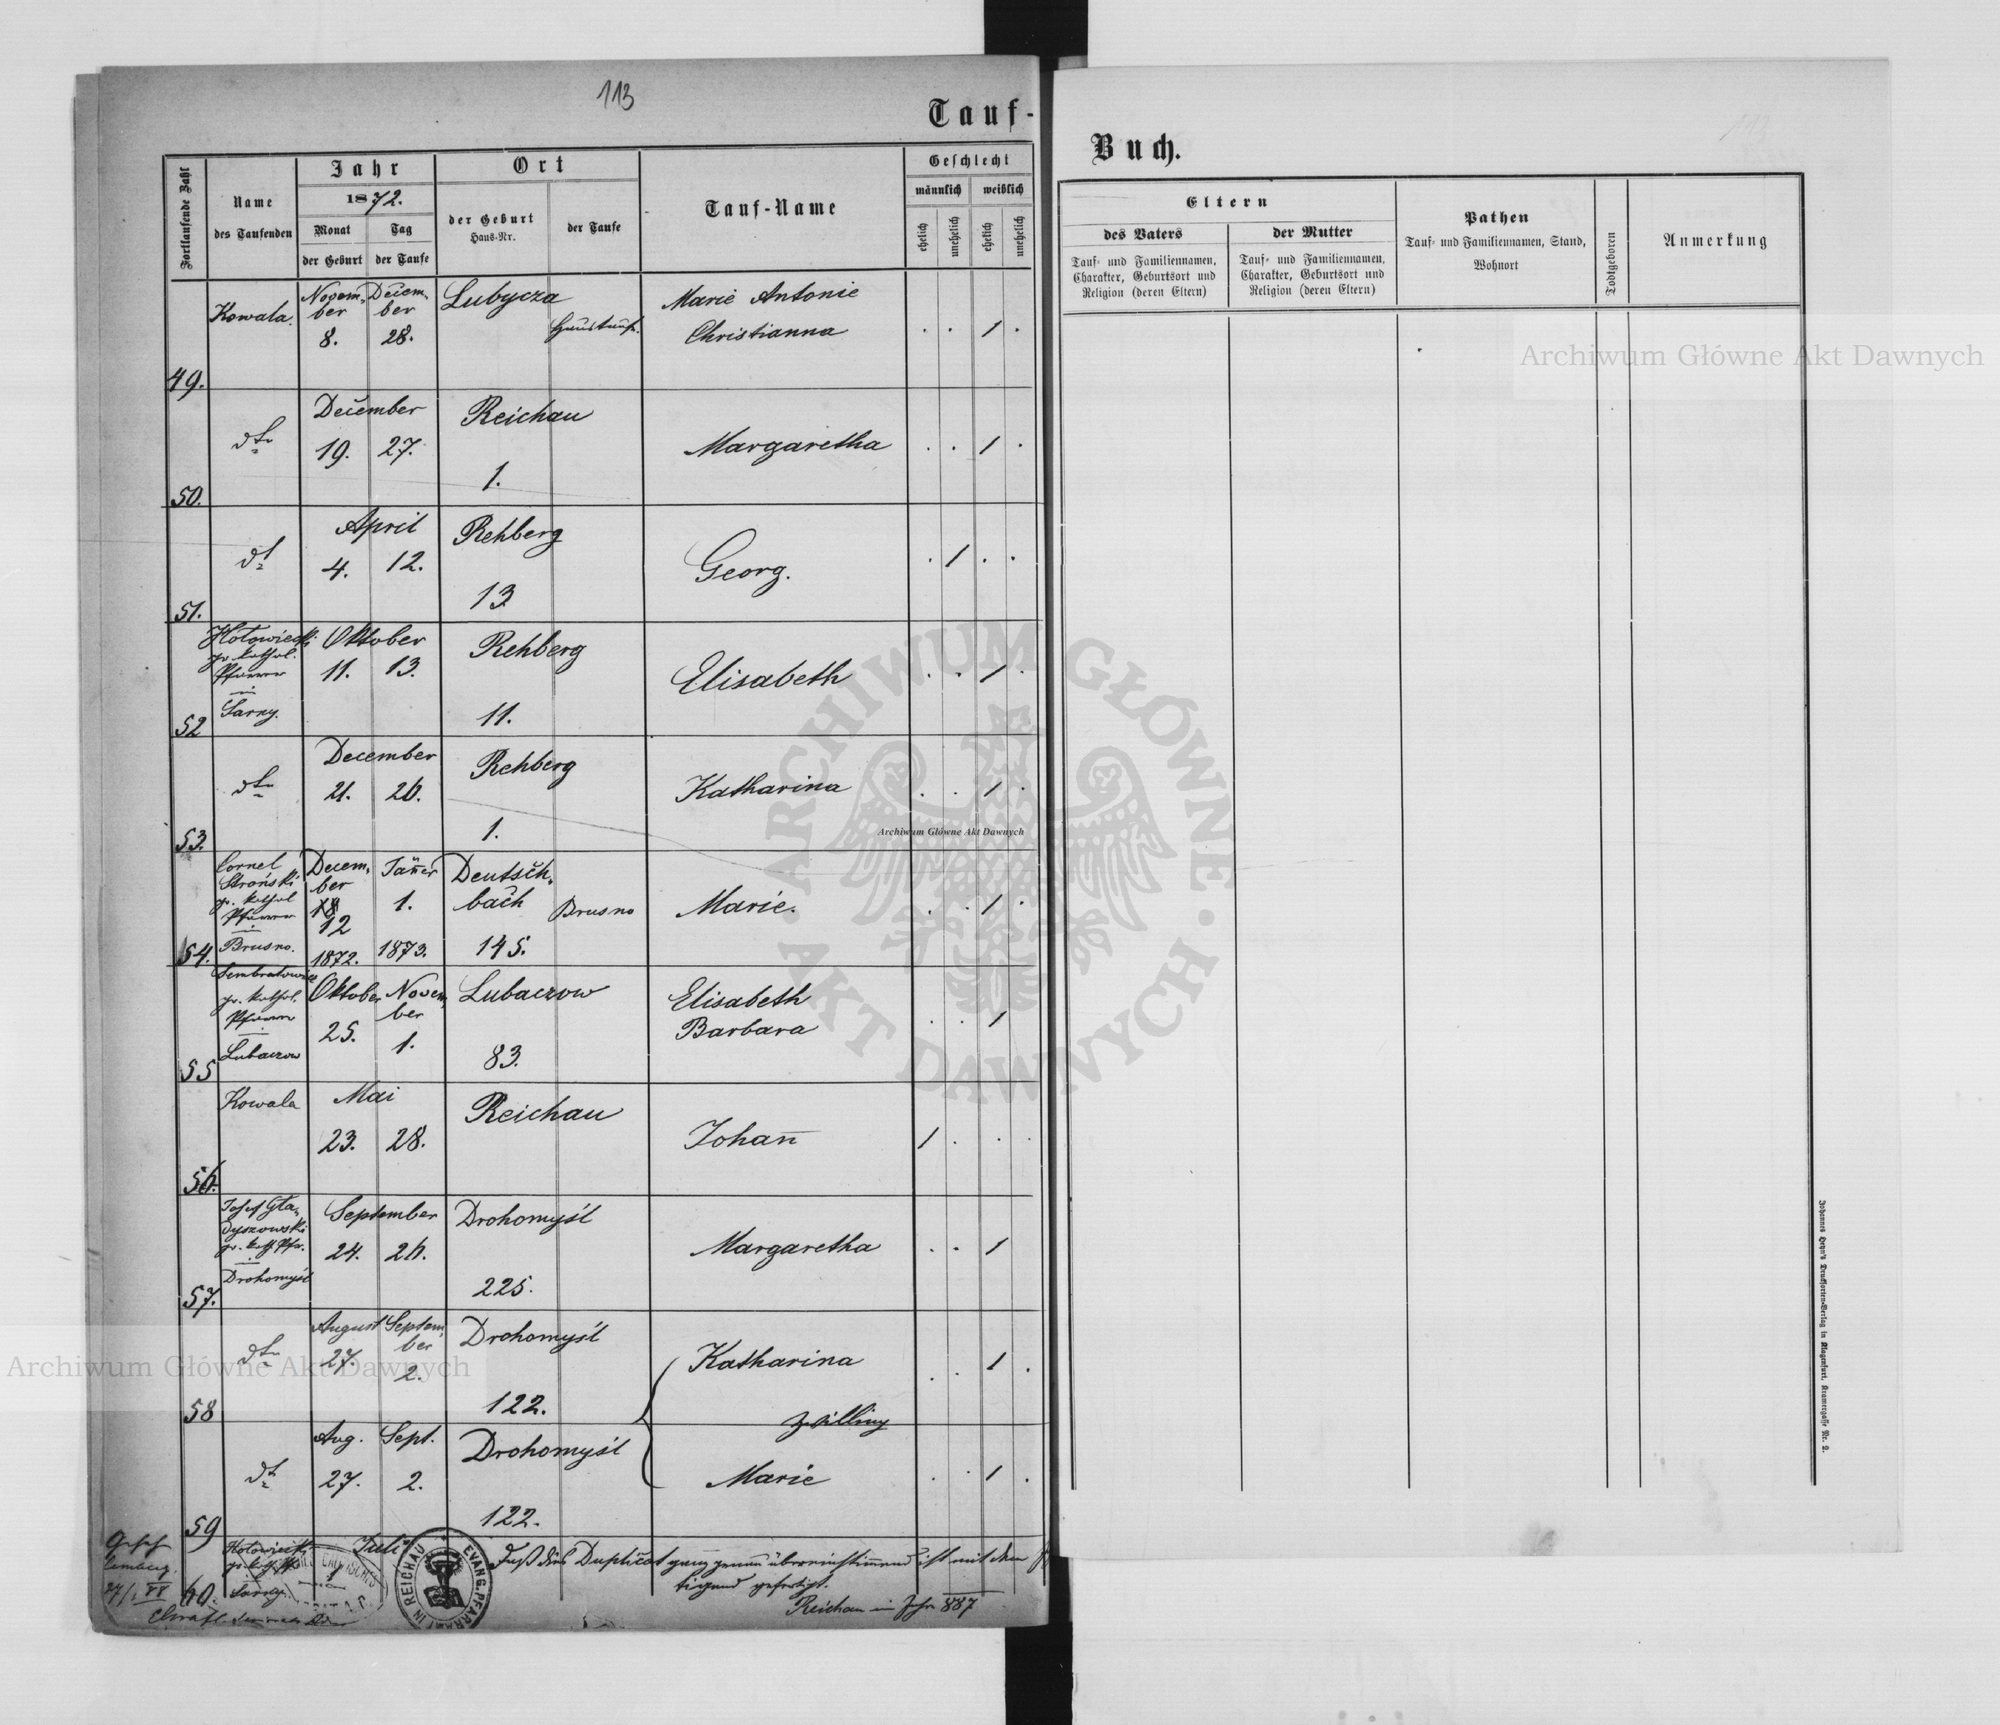 113
Tauf-
Fortlaufende Zahl
Name
des Taufenden
Jahr
1872.
Monat
Tag
der Geburt
der Taufe
Ort
der Geburt
Haus-Nr.
der Taufe
Tauf-Name
Geschlecht
männlich
weiblich
ehelich
unehelich
ehelich
unehelich
49.
Kowala.
Novem-
ber
8.
Decem-
ber
28.
Lubycza
Haustaufe.
Marie Antonie
Christianna
. . 1 .
50.
dto
December
19. 27.
Reichau
1.
Margaretha
. . 1 .
51.
dt
April
4. 12.
Rehberg
13
Georg.
. 1 . .
52
Hołowiecki
gr. kathol.
Pfarrer
in
Sarny.
Oktober
11. 13.
Rehberg
11.
Elisabeth
. . 1 .
53.
dto
December
21. 26.
Rehberg
1.
Katharina
. . 1 .
54.
Cornel
Stroński
gr. kathol
Pfarrer
in
Brusno.
Decem-
ber
18
12
1872.
Jänner
1.
1873.
Deutsch-
bach
145.
Brusno
Marie.
. . 1 .
55
Sembratowicz
gr. kathol.
Pfarrer
in
Lubaczow
Oktober
25.
Novem-
ber
1.
Lubaczow
83.
Elisabeth
Barbara
. . 1
56.
Kowala
Mai
23. 28.
Reichau
Johann
1 . . .
57.
Josef Gła-
dyszowski
gr. kath Pfr.
in
Drohomyśl
September
24. 26.
Drohomyśl
225.
Margaretha
. . 1
58
dto
August
27.
Septem-
ber
2.
Drohomyśl
122.
Katharina
. . 1 .
Zwilling
59
dt
Aug.
27.
Sept.
2.
Drohomyśl
122.
Marie
. . 1 .
60.
Hołowiecki
Sarny.
Juli
EVANG. PFARRAMT IN REICHAU
Daß dies Duplicat ganz genau übereinstimmend ist mit dem
gefertigt.
Reichau im Jahr 887
Lemberg
Buch.
Eltern
des Vaters
Tauf- und Familiennamen,
Charakter, Geburtsort und
Religion (deren Eltern)
der Mutter
Tauf- und Familiennamen,
Charakter, Geburtsort und
Religion (deren Eltern)
Pathen
Tauf- und Familiennamen, Stand,
Wohnort
Todtgeboren
Anmerkung
Johannes Heyn's Drucksorten-Verlag in Klagenfurt, Kramergasse Nr. 2.
Archiwum Główne Akt Dawnych
Archiwum Główne Akt Dawnych
Archiwum Główne Akt Dawnych
ARCHIWUM GŁÓWNE · AKT DAWNYCH ·